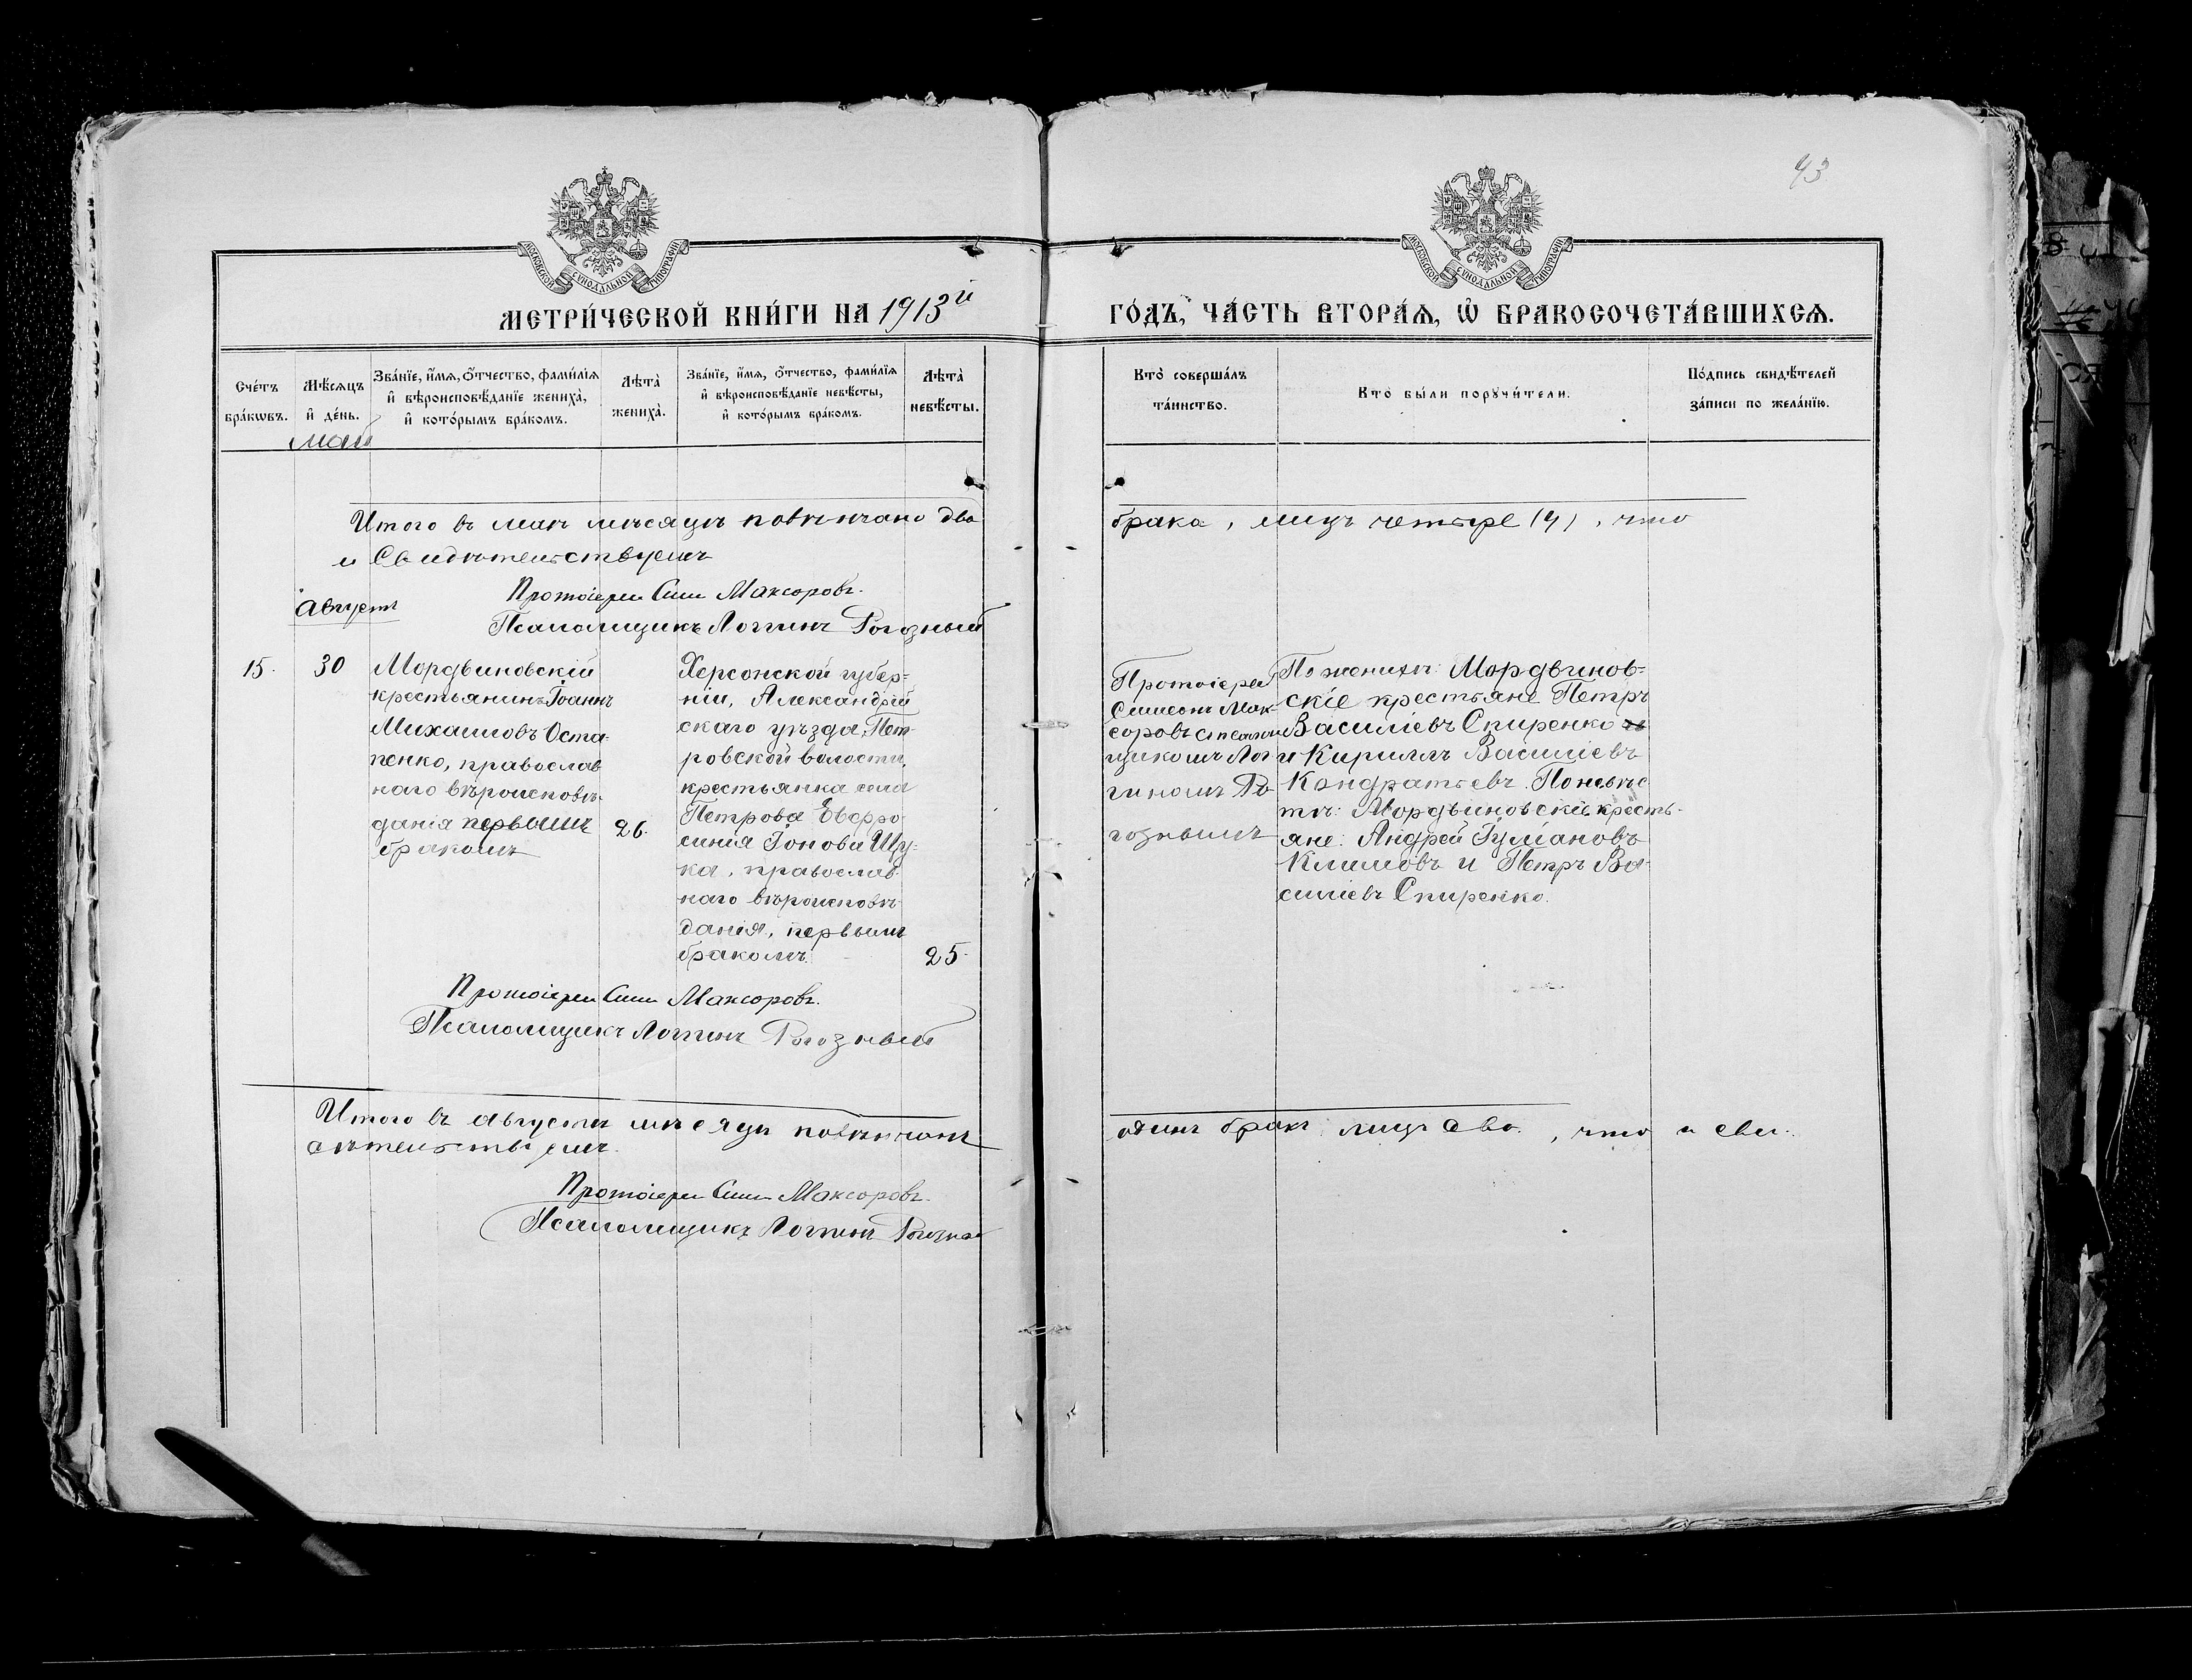 43
МОСКОВСКОЙ СѴНОДАЛЬНОЙ ТИПОГРАФІИ
МОСКОВСКОЙ СѴНОДАЛЬНОЙ ТИПОГРАФІИ
МЕТРИ́ЧЕСКОЙ КНИ́ГИ НА 1913й
ГО́ДЪ, ЧА́СТЬ ВТОРА́Ѧ, Ѡ҆ БРАКОСОЧЕТА́ВШИХСѦ.
Сче́тъ бра́кѡвъ.
Мѣ́сяцъ и҆ де́нь.
Зва́нїе, и҆́мѧ, ѻ҆́тчество, фами́лїѧ и҆ вѣроисповѣ́данїе жениха̀, и҆ кото́рымъ бра́комъ.
Лѣта̀ жениха̀.
Зва́нїе, и҆́мѧ, ѻ҆́тчество, фами́лїѧ и҆ вѣроисповѣ́данїе невѣ́сты, и҆ кото́рымъ бра́комъ.
Лѣта̀ невѣ́сты.
Кто̀ соверша́лъ та́инство.
Кто̀ бы́ли порꙋчи́тели.
По́дпись свидѣ́телей за́писи по жела́нїю.
Май
Итого въ маѣ мѣсяцѣ повѣнчано два
брака, лицъ четыре (4), что
и Свидѣтельствуемъ
Протоіерей Сим Максоровъ.
Псаломщикъ Логгинъ Рогозный
Августъ
15.
30
Мордвиновскій
крестьянинъ Іоаннъ
Михаиловъ Оста-
пенко, православ
наго вѣроисповѣ-
данія первымъ
бракомъ
26.
Херсонской губер=
ніи, Александрій
скаго уѣзда, Пет-
ровской волости,
крестьянка села
Петрова Евфро
синія Іонова Щу-
ка, православ-
наго вѣроисповѣ-
данія, первымъ
бракомъ.
25.
Протоіерей
Симеонъ Мак-
соровъ с псалом
щикомъ Лог
гиномъ Ро-
гознымъ
По женихѣ: Мордвинов-
скіе крестьяне Петръ
Василіевъ Спиренко
и Кириллъ Василіевъ
Кондратьевъ. По невѣс
тѣ: Мордвиновскіе кресть-
яне: Андрей
Климовъ и Петръ Ва-
силіевъ Спиренко.
Протоіерей Сим Максоровъ.
Псаломщикъ Логгинъ Рогозный
Итого въ августѣ мѣсяцѣ повѣнчанъ
одинъ бракъ, лицъ два, что и сви-
дѣтельствуемъ.
Протоіерей Сим Максоровъ.
Псаломщикъ Логгинъ Рогозный